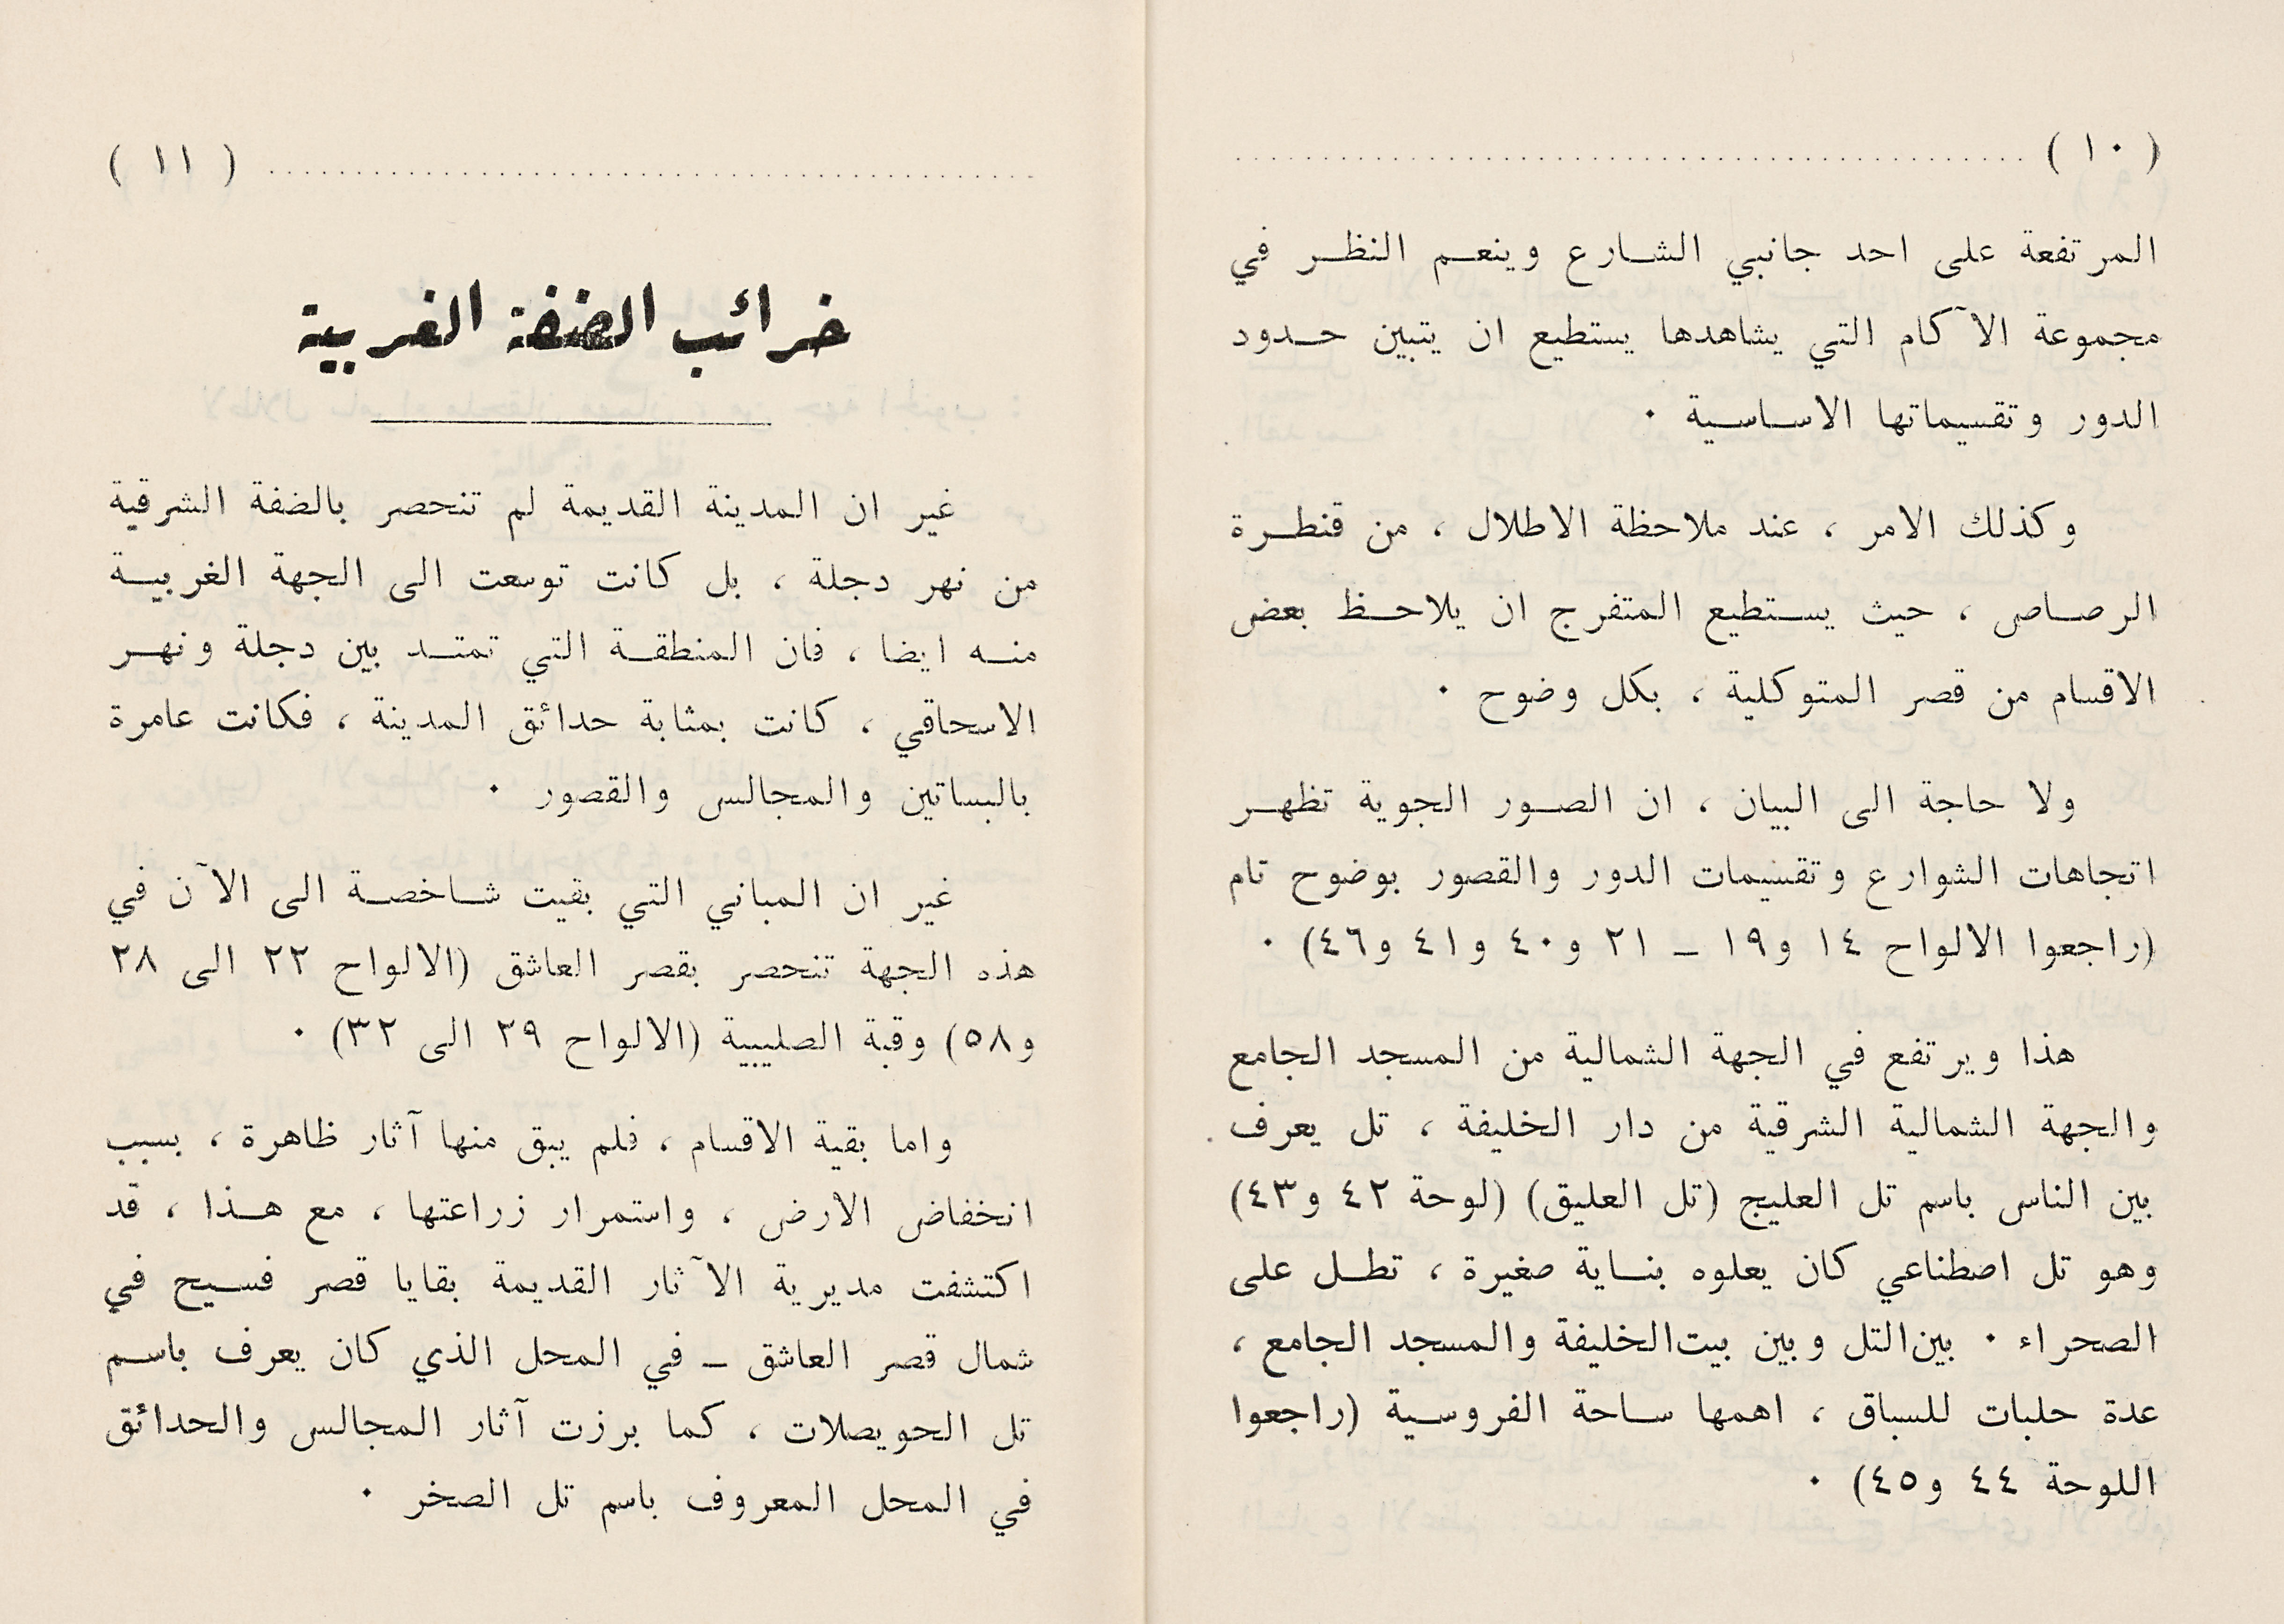 ( ١٠ ) ..............................................
المرتفعة على احد جانبي الشارع وينعم النظر في
مجموعة الآكام التي يشاهدها يستطيع ان يتبين حدود
الدور وتقسيماتها الاساسية ٠
وكذلك الامر ، عند ملاحظة الاطلال ، من قنطرة
الرصاص ، حيث يستطيع المتفرج ان يلاحظ بعض
الاقسام من قصر المتوكلية ، بكل وضوح ٠
ولا حاجة الى البيان ، ان الصور الجوية تظهر
اتجاهات الشوارع وتقسيمات الدور والقصور بوضوح تام
(راجعوا الالواح ١٤ و١٩ ـ ٢١ و٤٠ و٤١ و٤٦) ٠
هذا ويرتفع في الجهة الشمالية من المسجد الجامع
والجهة الشمالية الشرقية من دار الخليفة ، تل يعرف
بين الناس باسم تل العليج (تل العليق) (لوحة ٤٢ و٤٣)
وهو تل اصطناعي كان يعلوه بناية صغيرة ، تطل على
الصحراء ٠ بين التل وبين بيت الخليفة والمسجد الجامع ،
عدة حلبات للسباق ، اهمها ساحة الفروسية (راجعوا
اللوحة ٤٤ و٤٥) ٠
( ١١ ) ..............................................
خرائب الضفة الغربية
غير ان المدينة القديمة لم تنحصر بالضفة الشرقية
من نهر دجلة ، بل كانت توسعت الى الجهة الغربية
منه ايضا ، فان المنطقة التي تمتد بين دجلة ونهر
الاسحاقي ، كانت بمثابة حدائق المدينة ، فكانت عامرة
بالبساتين والمجالس والقصور ٠
غير ان المباني التي بقيت شاخصة الى الآن في
هذه الجهة تنحصر بقصر العاشق (الالواح ٢٢ الى ٢٨
و٥٨) وقبة الصليبية (الالواح ٢٩ الى ٣٢) ٠
واما بقية الاقسام ، فلم يبق منها آثار ظاهرة ، بسبب
انخفاض الارض ، واستمرار زراعتها ، مع هذا ، قد
اكتشفت مديرية الآثار القديمة بقايا قصر فسيح في
شمال قصر العاشق ـ في المحل الذي كان يعرف باسم
تل الحويصلات ، كما برزت آثار المجالس والحدائق
في المحل المعروف باسم تل الصخر ٠